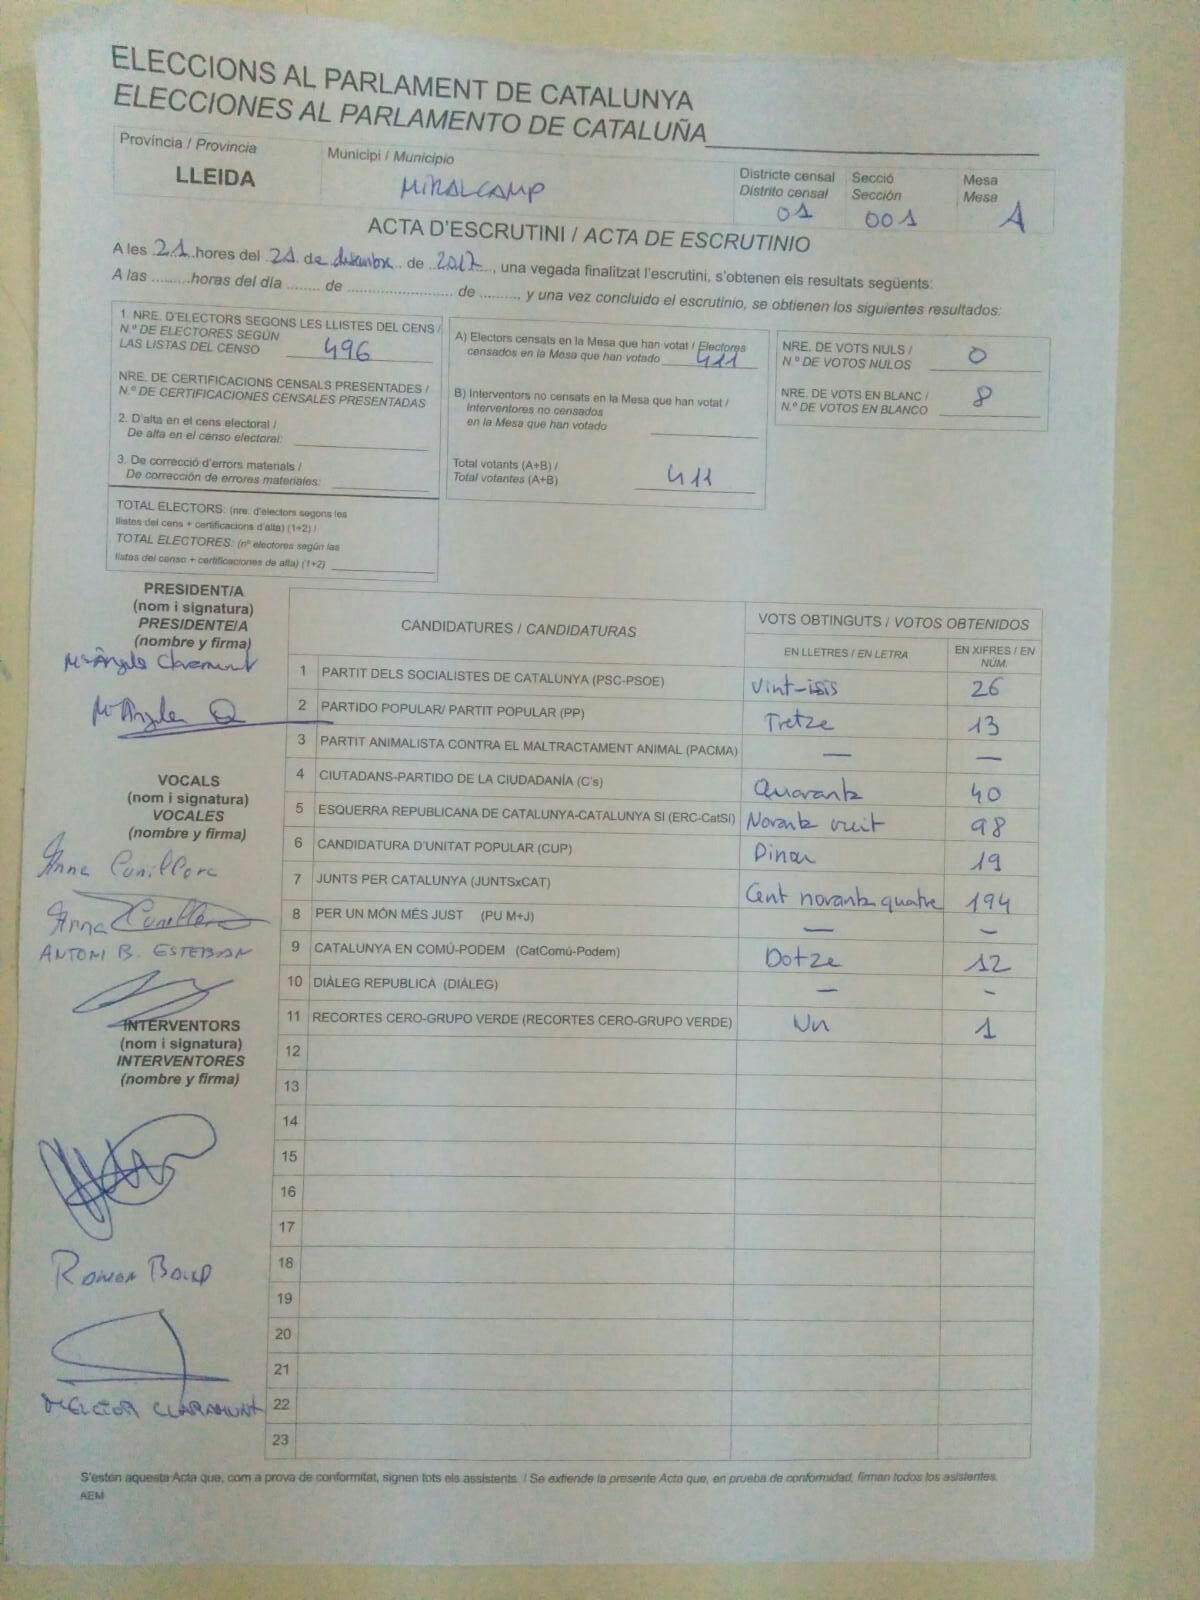 ELECCIONS AL PARLAMENT DE CATALUNYA
ELECCIONES AL PARLAMENTO DE CATALUÑA
Província / Provincia
LLEIDA
Municipi / Municipio
MIRALCAMP
Districte censal
Distrito censal
01
Secció
Sección
001
Mesa
Mesa
A
ACTA D'ESCRUTINI / ACTA DE ESCRUTINIO
A les 21 hores del 21 de desembre de 2017, una vegada finalitzat l'escrutini, s'obtenen els resultats següents:
A las .........horas del día ........ de ........................... de .........., y una vez concluido el escrutinio, se obtienen los siguientes resultados:
1. NRE. D'ELECTORS SEGONS LES LLISTES DEL CENS /
N.º DE ELECTORES SEGÚN
LAS LISTAS DEL CENSO 496
NRE. DE CERTIFICACIONS CENSALS PRESENTADES /
N.º DE CERTIFICACIONES CENSALES PRESENTADAS
2. D'alta en el cens electoral /
De alta en el censo electoral:
3. De correcció d'errors materials /
De corrección de errores materiales:
TOTAL ELECTORS: (nre. d'electors segons les
llistes del cens + certificacions d'alta) (1+2) /
TOTAL ELECTORES: (nº electores según las
listas del censo + certificaciones de alta) (1+2)
A) Electors censats en la Mesa que han votat / Electores
censados en la Mesa que han votado 411
B) Interventors no censats en la Mesa que han votat /
Interventores no censados
en la Mesa que han votado
Total votants (A+B) /
Total votantes (A+B) 411
NRE. DE VOTS NULS /
N.º DE VOTOS NULOS 0
NRE. DE VOTS EN BLANC /
N.º DE VOTOS EN BLANCO 8
PRESIDENT/A
(nom i signatura)
PRESIDENTE/A
(nombre y firma)
Mª Àngels Claramunt
Mª Àngels
VOCALS
(nom i signatura)
VOCALES
(nombre y firma)
Anna Cunillera
Anna Cunillera
ANTONI B. ESTEBAN
INTERVENTORS
(nom i signatura)
INTERVENTORES
(nombre y firma)
RAMON
MELCIOR CLARAMUNT
CANDIDATURES / CANDIDATURAS
VOTS OBTINGUTS / VOTOS OBTENIDOS
EN LLETRES / EN LETRA
EN XIFRES / EN NÚM.
1 PARTIT DELS SOCIALISTES DE CATALUNYA (PSC-PSOE) Vint-isis 26
2 PARTIDO POPULAR/ PARTIT POPULAR (PP) Tretze 13
3 PARTIT ANIMALISTA CONTRA EL MALTRACTAMENT ANIMAL (PACMA) — —
4 CIUTADANS-PARTIDO DE LA CIUDADANÍA (C's) Quaranta 40
5 ESQUERRA REPUBLICANA DE CATALUNYA-CATALUNYA SÍ (ERC-CatSí) Noranta vuit 98
6 CANDIDATURA D'UNITAT POPULAR (CUP) Dinou 19
7 JUNTS PER CATALUNYA (JUNTSxCAT) Cent noranta quatre 194
8 PER UN MÓN MÉS JUST (PU M+J) — –
9 CATALUNYA EN COMÚ-PODEM (CatComú-Podem) Dotze 12
10 DIÀLEG REPUBLICÀ (DIÀLEG) — -
11 RECORTES CERO-GRUPO VERDE (RECORTES CERO-GRUPO VERDE) Un 1
12
13
14
15
16
17
18
19
20
21
22
23
S'estén aquesta Acta que, com a prova de conformitat, signen tots els assistents. / Se extiende la presente Acta que, en prueba de conformidad, firman todos los asistentes.
AEM